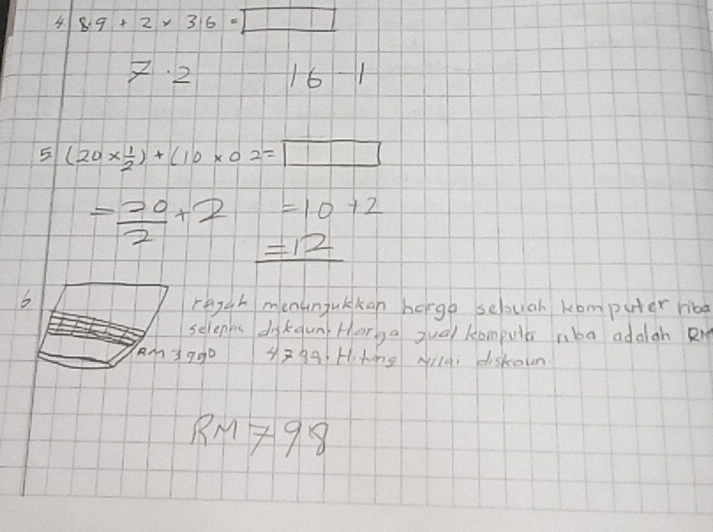 4 8.9 + 2 × 3.6 =
7.2 16.1
5 (20 × 1/2) + (10 × 0.2 =
= 20/2 + 2 = 10 + 2
= 12
6 rajah menunjukkan harga sebuah komputer riba
selepas diskaun. Harga jual komputer riba adalah RM
RM 3990 4799. Hitung Nilai diskaun
RM 798